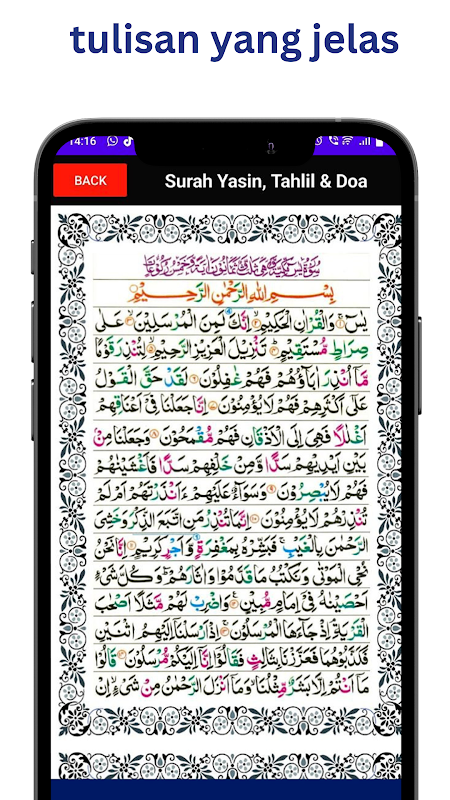 tulisan yang jelas
14:16
BACK
Surah Yasin, Tahlil & Doa
بِسْمِ اللّٰهِ الرَّحْمٰنِ الرَّحِيْمِ
يٰسٓ ۚ۝۱ وَالْقُرْاٰنِ الْحَكِيْمِ ۙ۝۲ اِنَّكَ لَمِنَ الْمُرْسَلِيْنَ ۙ۝۳ عَلٰى
صِرَاطٍ مُّسْتَقِيْمٍ ؕ۝۴ تَنْزِيْلَ الْعَزِيْزِ الرَّحِيْمِ ۙ۝۵ لِتُنْذِرَ قَوْمًا
مَّاۤ اُنْذِرَ اٰبَآؤُهُمْ فَهُمْ غٰفِلُوْنَ ۝۶ لَقَدْ حَقَّ الْقَوْلُ
عَلٰۤى اَكْثَرِهِمْ فَهُمْ لَا يُؤْمِنُوْنَ ۝۷ اِنَّا جَعَلْنَا فِيْۤ اَعْنَاقِهِمْ
اَغْلٰلًا فَهِيَ اِلَى الْاَذْقَانِ فَهُمْ مُّقْمَحُوْنَ ۝۸ وَجَعَلْنَا مِنْۢ
بَيْنِ اَيْدِيْهِمْ سَدًّا وَّمِنْ خَلْفِهِمْ سَدًّا فَاَغْشَيْنٰهُمْ
فَهُمْ لَا يُبْصِرُوْنَ ۝۹ وَسَوَآءٌ عَلَيْهِمْ ءَاَنْذَرْتَهُمْ اَمْ لَمْ
تُنْذِرْهُمْ لَا يُؤْمِنُوْنَ ۝۱۰ اِنَّمَا تُنْذِرُ مَنِ اتَّبَعَ الذِّكْرَ وَخَشِيَ
الرَّحْمٰنَ بِالْغَيْبِ ۚ فَبَشِّرْهُ بِمَغْفِرَةٍ وَّاَجْرٍ كَرِيْمٍ ۝۱۱ اِنَّا نَحْنُ
نُحْيِ الْمَوْتٰى وَنَكْتُبُ مَا قَدَّمُوْا وَاٰثَارَهُمْ ؕ وَكُلَّ شَيْءٍ
اَحْصَيْنٰهُ فِيْۤ اِمَامٍ مُّبِيْنٍ ۝۱۲ وَاضْرِبْ لَهُمْ مَّثَلًا اَصْحٰبَ
الْقَرْيَةِ ۘ اِذْ جَآءَهَا الْمُرْسَلُوْنَ ۝۱۳ اِذْ اَرْسَلْنَاۤ اِلَيْهِمُ اثْنَيْنِ
فَكَذَّبُوْهُمَا فَعَزَّزْنَا بِثَالِثٍ فَقَالُوْۤا اِنَّاۤ اِلَيْكُمْ مُّرْسَلُوْنَ ۝۱۴ قَالُوْا
مَاۤ اَنْتُمْ اِلَّا بَشَرٌ مِّثْلُنَا ۙ وَمَاۤ اَنْزَلَ الرَّحْمٰنُ مِنْ شَيْءٍ ۙ اِنْ